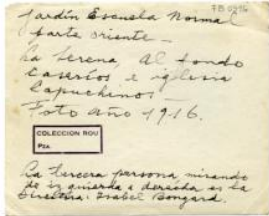 FB 0396
Jardín Escuela Normal
parte oriente –
La Serena, Al fondo
Caseríos e iglesia
Capuchinos –
Foto año 1916.
COLECCION ROU
Pza.
La tercera persona mirando
de izquierda a derecha es la
Directora: Isabel Bongard.